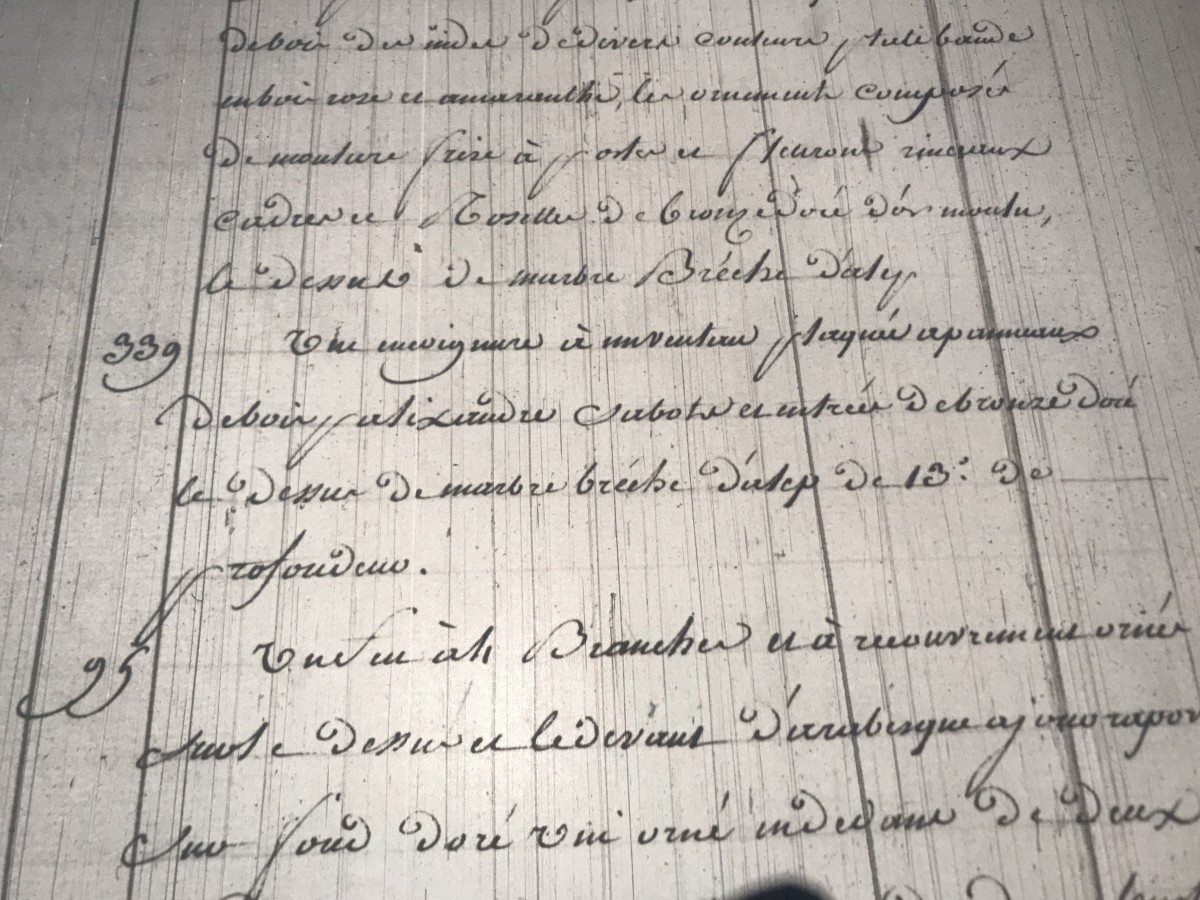 de bois des indes de divers couleurs, platebande
en bois rose et amaranthe, les ornements composés
de moulure frise à postes et fleurons rinceaux
cadres et Rosettes de bronze doré d'or moulu,
le dessus de marbre Brêche d'alep
339 Une encoignure à un ventau plaquée a panneaux
de bois palixandre Sabots et entrées de bronze doré
le dessus de marbre brêche d'alep de 13.º de
profondeur.
95 Un feu à 4 Branches et à recouvrement ornés
Sur le dessus et le devant d'arabesque a jour rapor
Sur fond doré uni orné en devant de deux